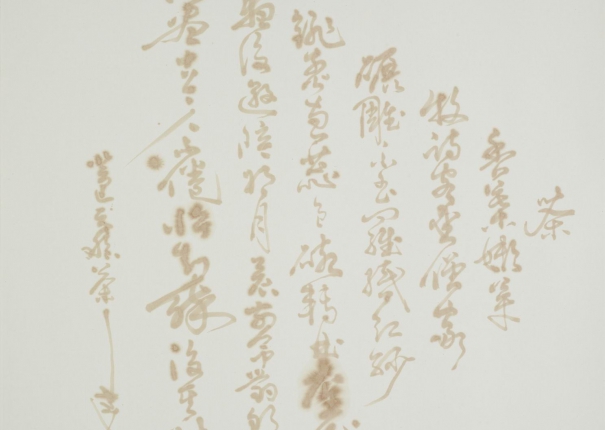 茶
香葉嫩芽
慕詩客愛僧家
碾雕白玉羅織紅紗
銚煎黃蕊色碗轉曲塵花
夜後邀陪明月晨前命對朝
盡古今人不倦將知醉後豈
元稹茶